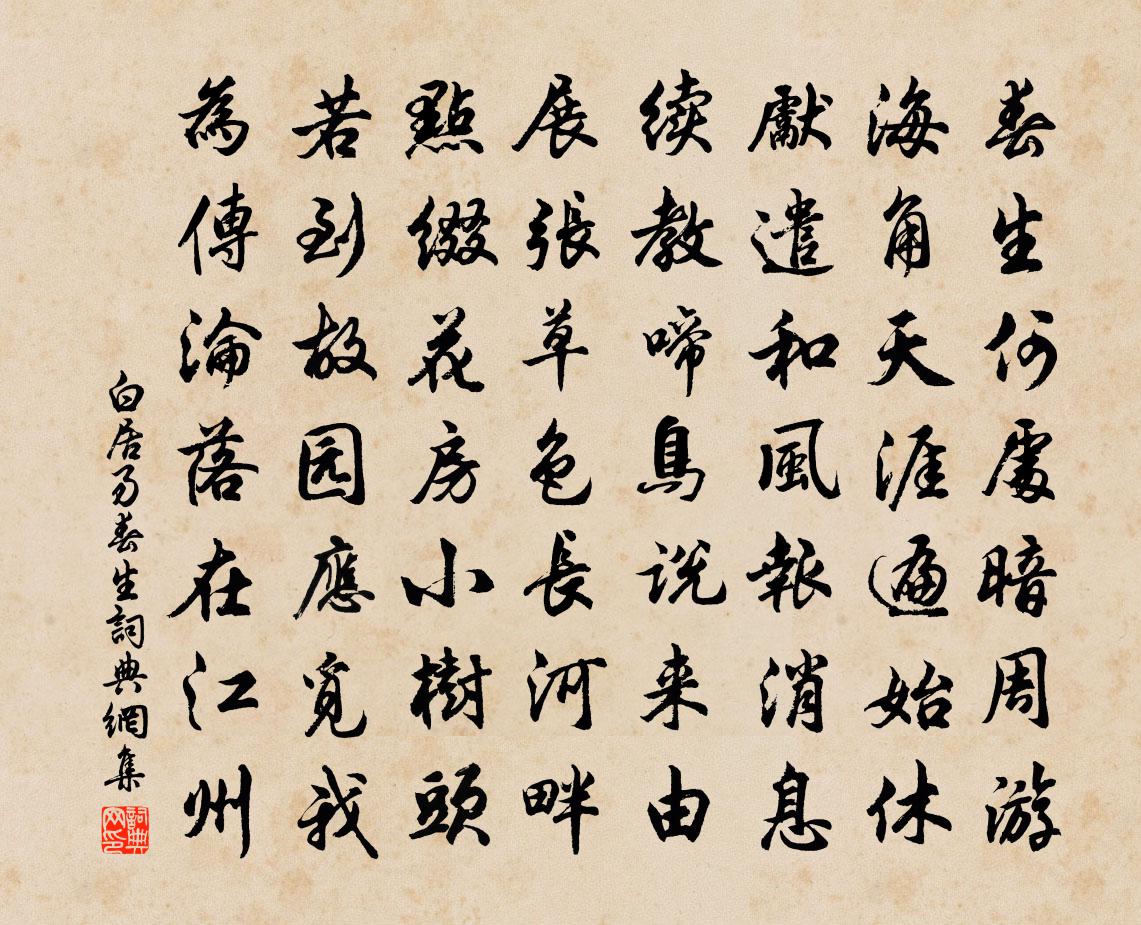 春生何處暗周游
海角天涯遍始休
獻遣和風報消息
續教啼鳥说来由
展張草色長河畔
點綴花房小樹頭
若到故园應覓我
為傳淪落在江州
白居易春生詞典網集
詞典网印